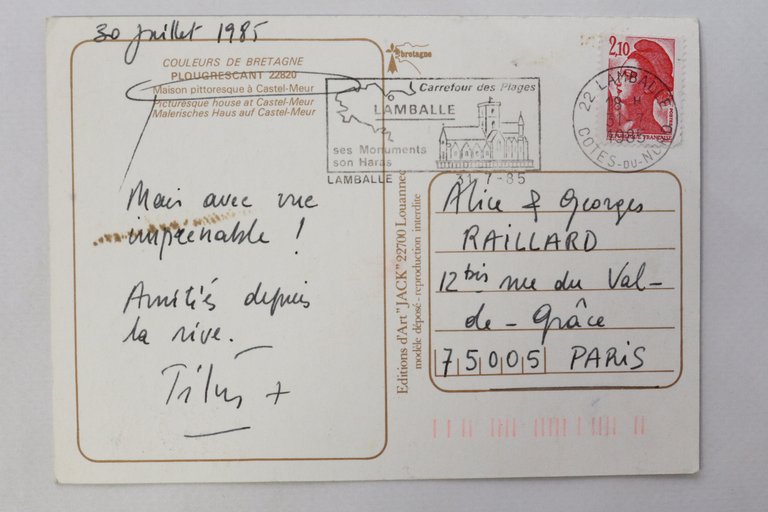 30 juillet 1985
COULEURS DE BRETAGNE
PLOUGRESCANT 22820
Maison pittoresque à Castel-Meur
Picturesque house at Castel-Meur
Malerisches Haus auf Castel-Meur
Mais avec vue
imprenable !
Amitiés depuis
la rive.
bretagne
Carrefour des Plages
LAMBALLE
ses Monuments
son Haras
LAMBALLE
31-7-85
2,10
22 LAMBALLE
18 H
1985
COTES-DU-NORD
Editions d'Art "JACK" 22700 Louannec
modèle déposé - reproduction interdite
Alice & Georges
RAILLARD
12 bis rue du Val-
de-Grâce
75005 PARIS